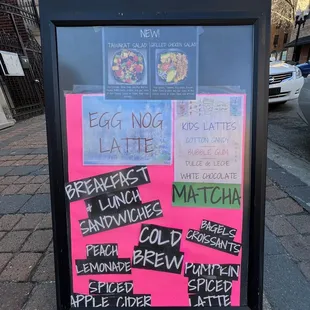 NEW!
EGG NOG
LATTE
KIDS LATTES
COTTON CANDY
BUBBLE GUM
DULCE de LECHE
WHITE CHOCOLATE
MATCHA
BREAKFAST
+ LUNCH
SANDWICHES
PEACH
LEMONADE
SPICED
APPLE CIDER
COLD
BREW
BAGELS
CROISSANTS
PUMPKIN
SPICED
LATTE